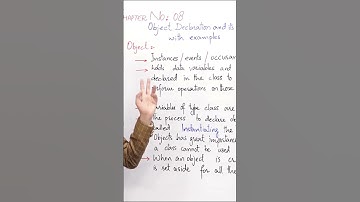 CHAPTER No: 08
Object, Declaration and its
with examples
Object:-
→ Instances / events / occusran
→ holds data variables and
declared in the class to
perform operations on those
variables of type class are
the process to declare ob
called Instantiating the
Objects has great importanc
a class cannot be used
→ When an object is cr
is set aside for all the